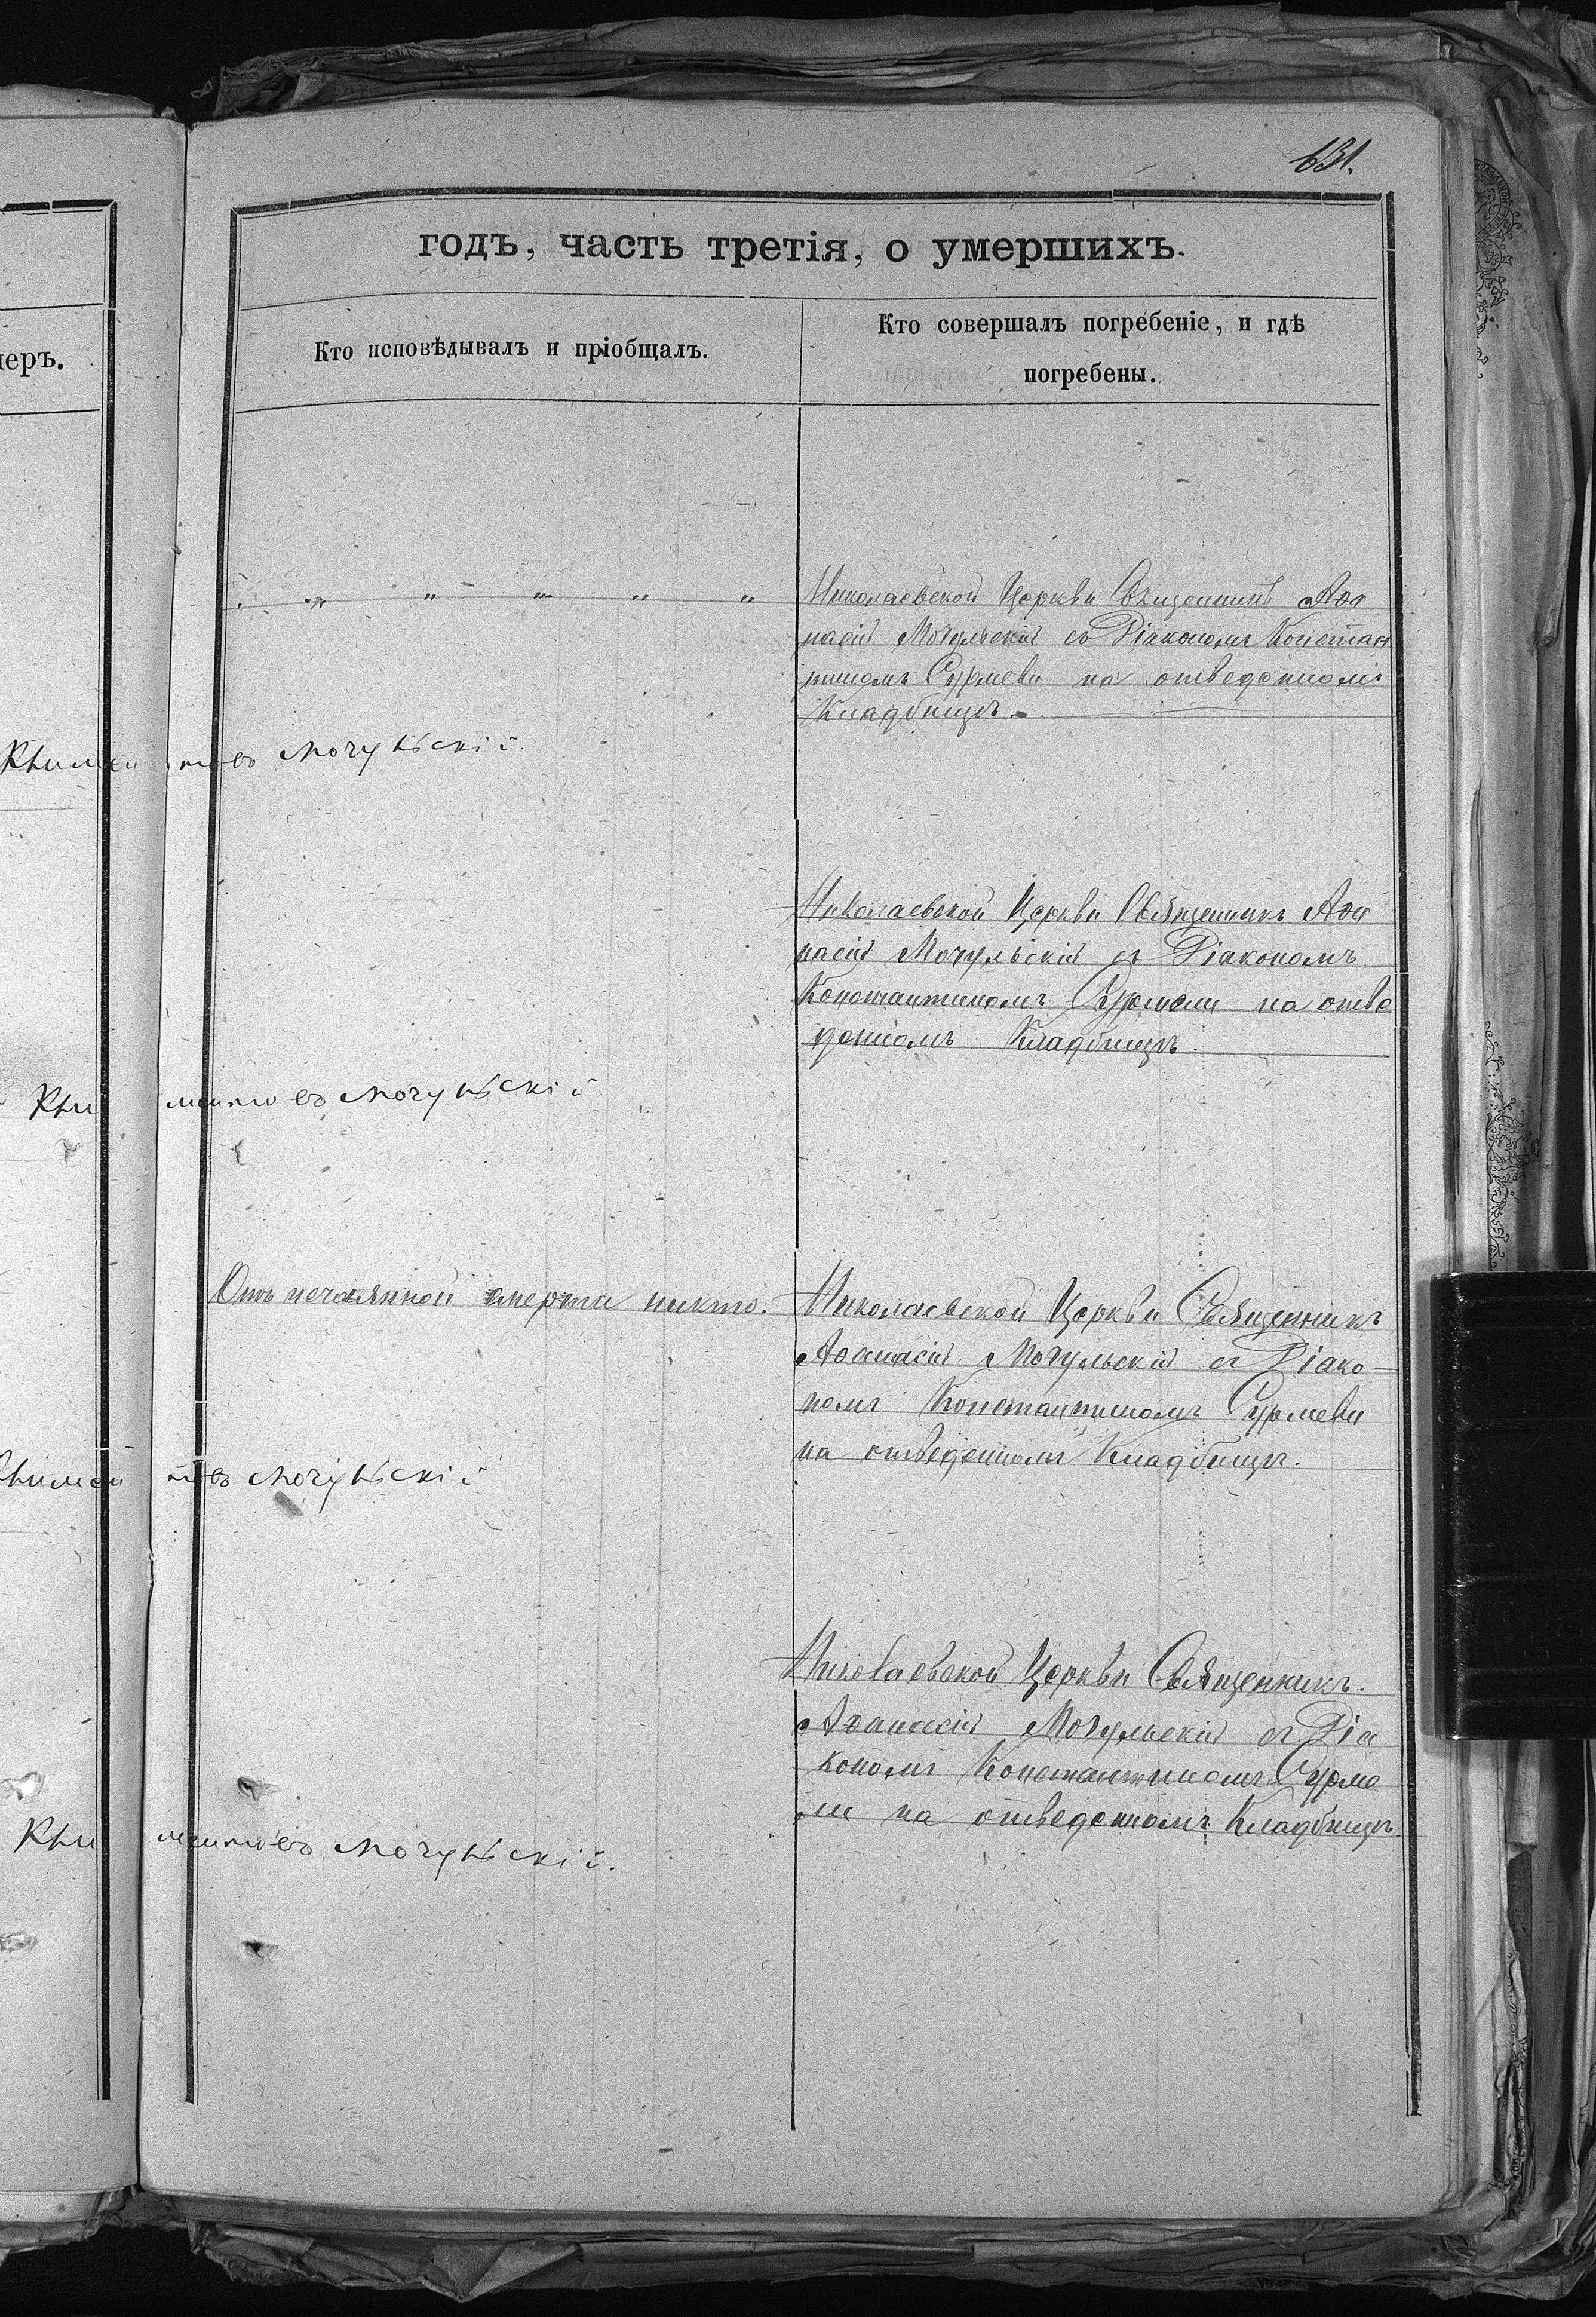 631.
годъ, часть третія, о умершихъ.
меръ.
Кто исповѣдывалъ и пріобщалъ.
Кто совершалъ погребеніе, и гдѣ
погребены.
" " " " "
Николаевской Церкви Священникъ Аѳа
насій Мочульскій съ Діакономъ Констан
тиномъ Сурмеви на отведенномъ
Кладбищѣ.
Мочульскій.
Николаевской Церкви Священникъ Аѳа
насій Мочульскій съ Діакономъ
Константиномъ Сурмели на отве
денномъ Кладбищѣ.
Мочульскій
Отъ нечаянной смерти никто.
Николаевской Церкви Священникъ
Аѳанасій Мочульскій съ Діако-
номъ Константиномъ Сурмеви
на отведенномъ Кладбищѣ.
Мочульскій
Николаевской Церкви Священникъ.
Аѳанасій Мочульскій съ Діа
кономъ Константиномъ Сурме
ли на отведенномъ Кладбищѣ
Мочульскій.